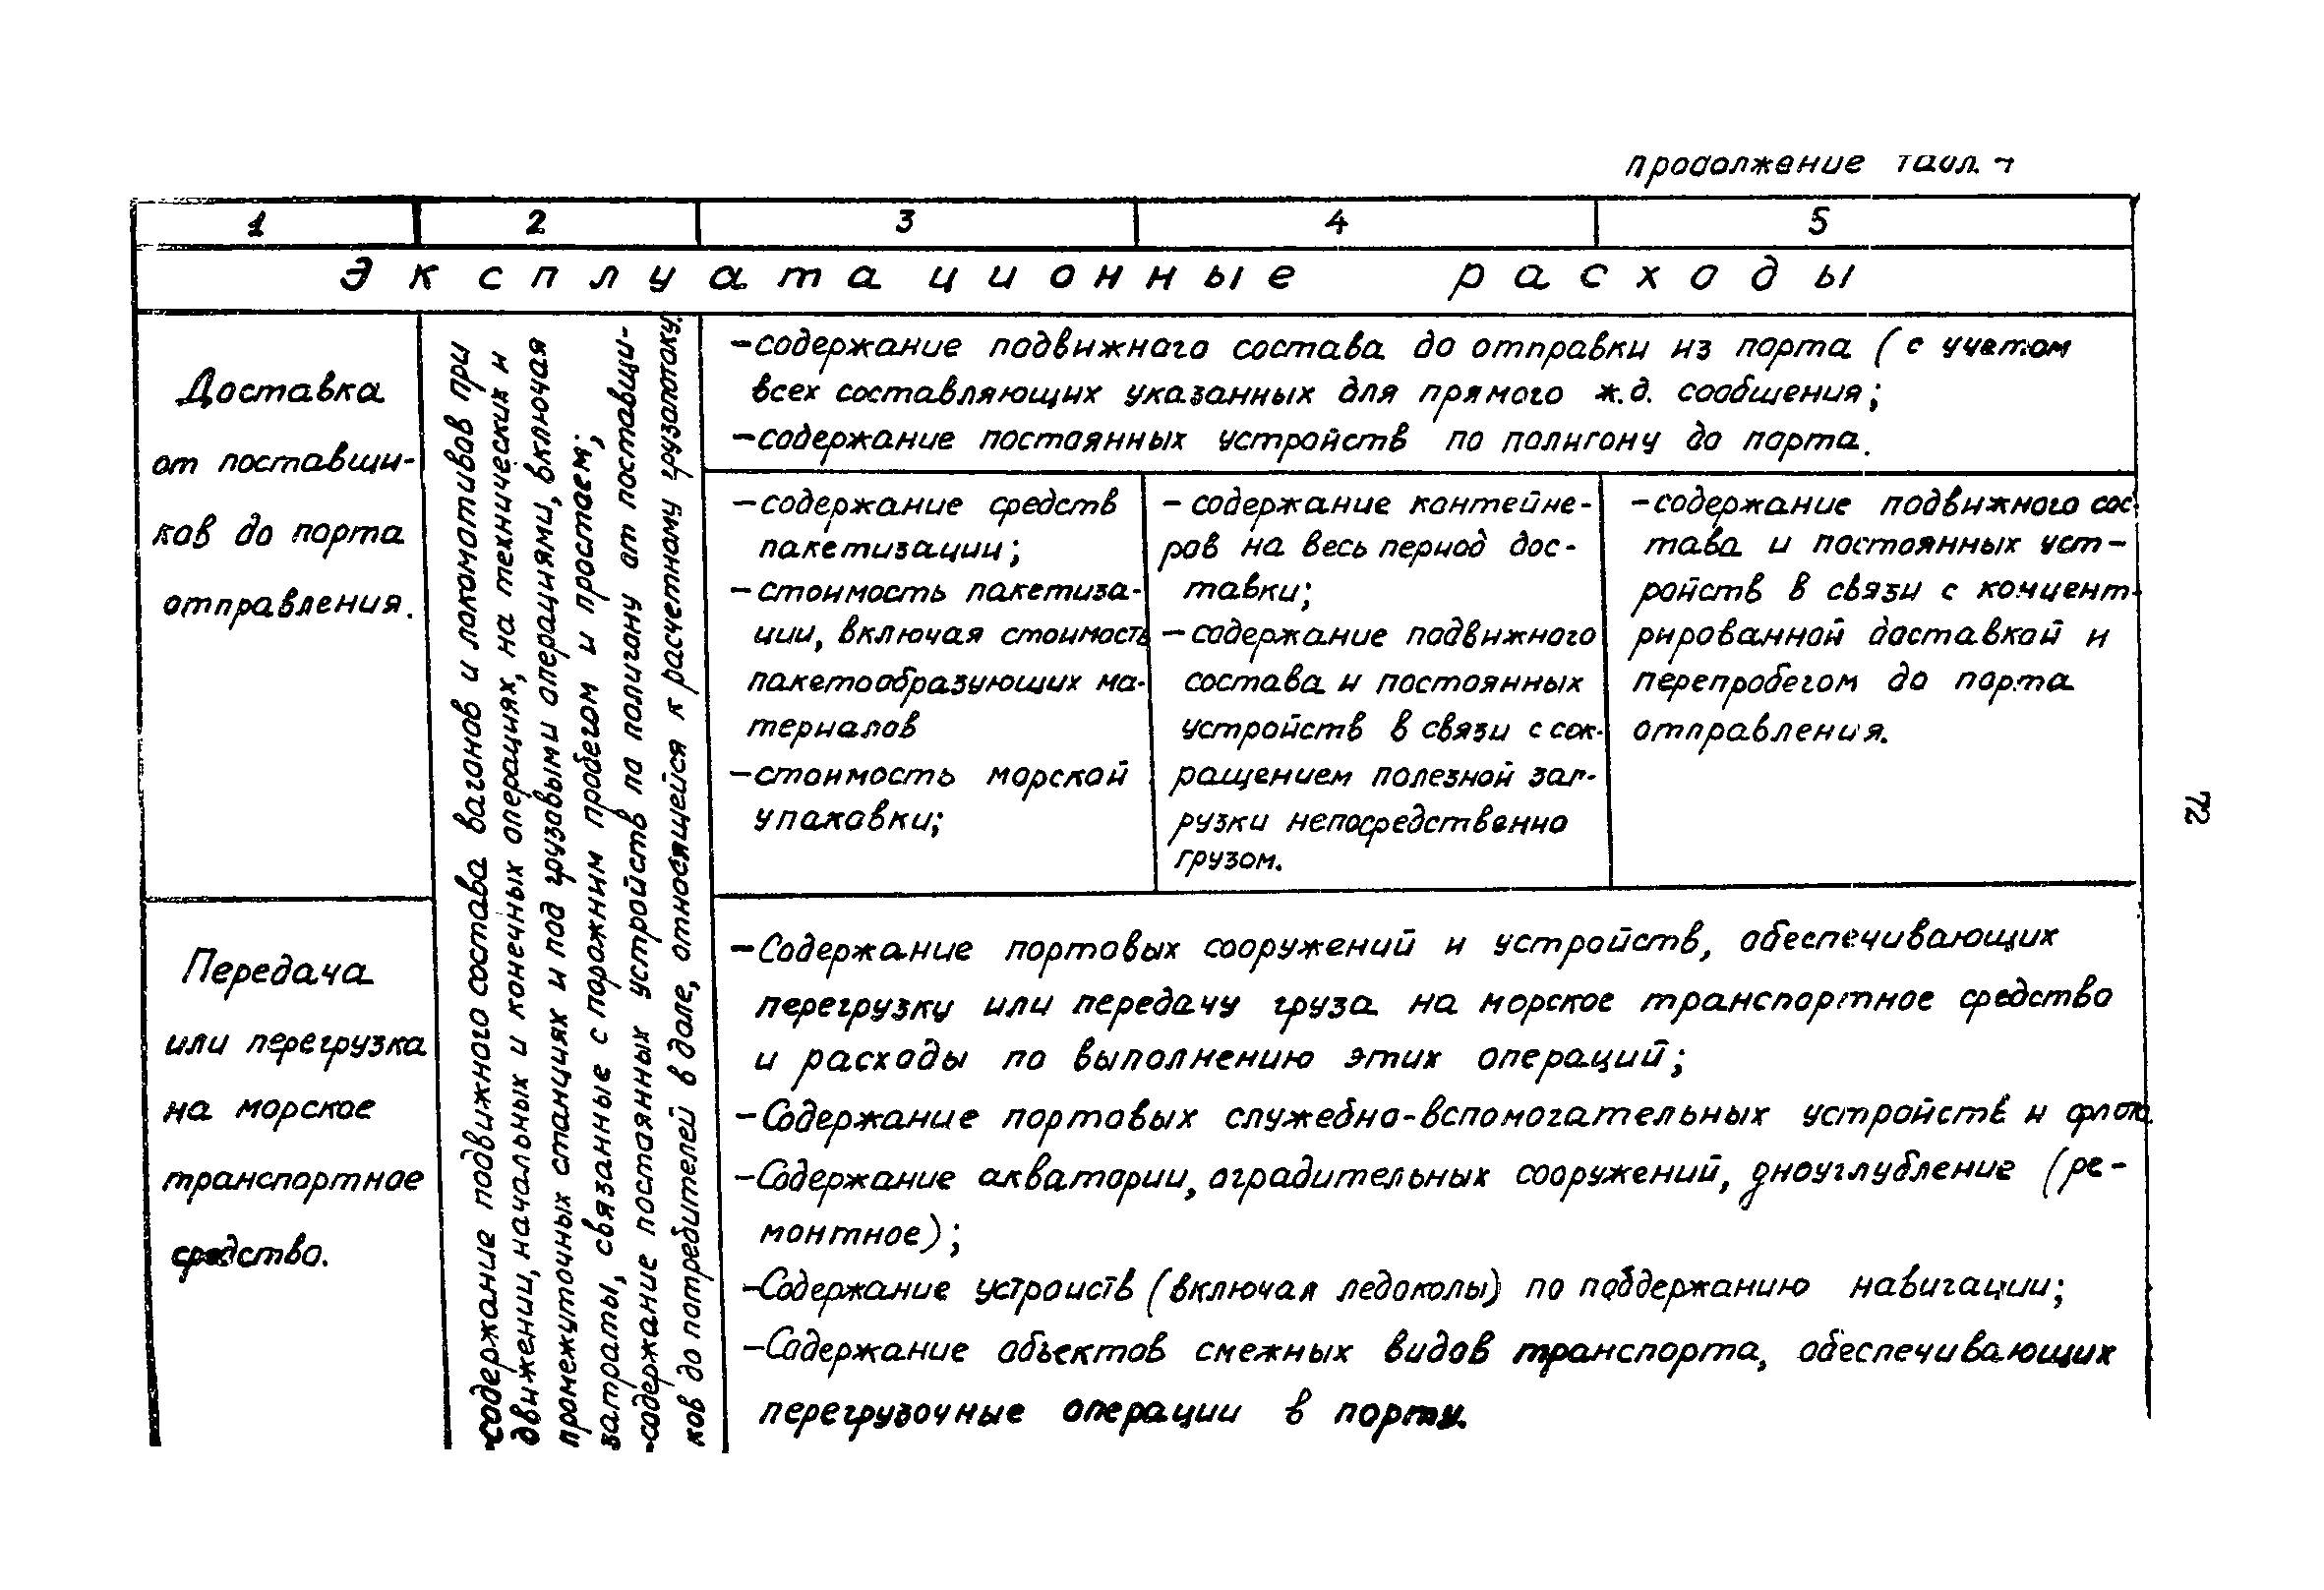 продолжение табл.
1 2 3 4 5
Эксплуатационные расходы
Доставка
от поставщи-
ков до порта
отправления.
-содержание подвижного состава вагонов и локомотивов при
движении, начальных и конечных операциях, на технических и
промежуточных станциях и под грузовыми операциями, включая
затраты, связанные с порожним пробегом и простоем;
-содержание постоянных устройств по полигону от поставщи-
ков до потребителей в доле, относящейся к расчетному грузопотоку.
-содержание подвижного состава до отправки из порта (с учетом
всех составляющих указанных для прямого ж.д. сообщения;
-содержание постоянных устройств по полигону до порта.
-содержание средств
пакетизации;
-стоимость пакетиза-
ции, включая стоимость
пакетообразующих ма-
териалов
-стоимость морской
упаковки;
- содержание контейне-
ров на весь период дос-
тавки;
-содержание подвижного
состава и постоянных
устройств в связи с сок-
ращением полезной заг-
рузки непосредственно
грузом.
-содержание подвижного сос-
тава и постоянных уст-
ройств в связи с концент-
рированной доставкой и
перепробегом до порта
отправления.
Передача
или перегрузка
на морское
транспортное
средство.
-Содержание портовых сооружений и устройств, обеспечивающих
перегрузку или передачу груза на морское транспортное средство
и расходы по выполнению этих операций;
-Содержание портовых служебно-вспомогательных устройств и флота
-Содержание акватории, оградительных сооружений, дноуглубление (ре-
монтное);
-Содержание устройств (включая ледоколы) по поддержанию навигации;
-Содержание объектов смежных видов транспорта, обеспечивающих
перегрузочные операции в порту.
72